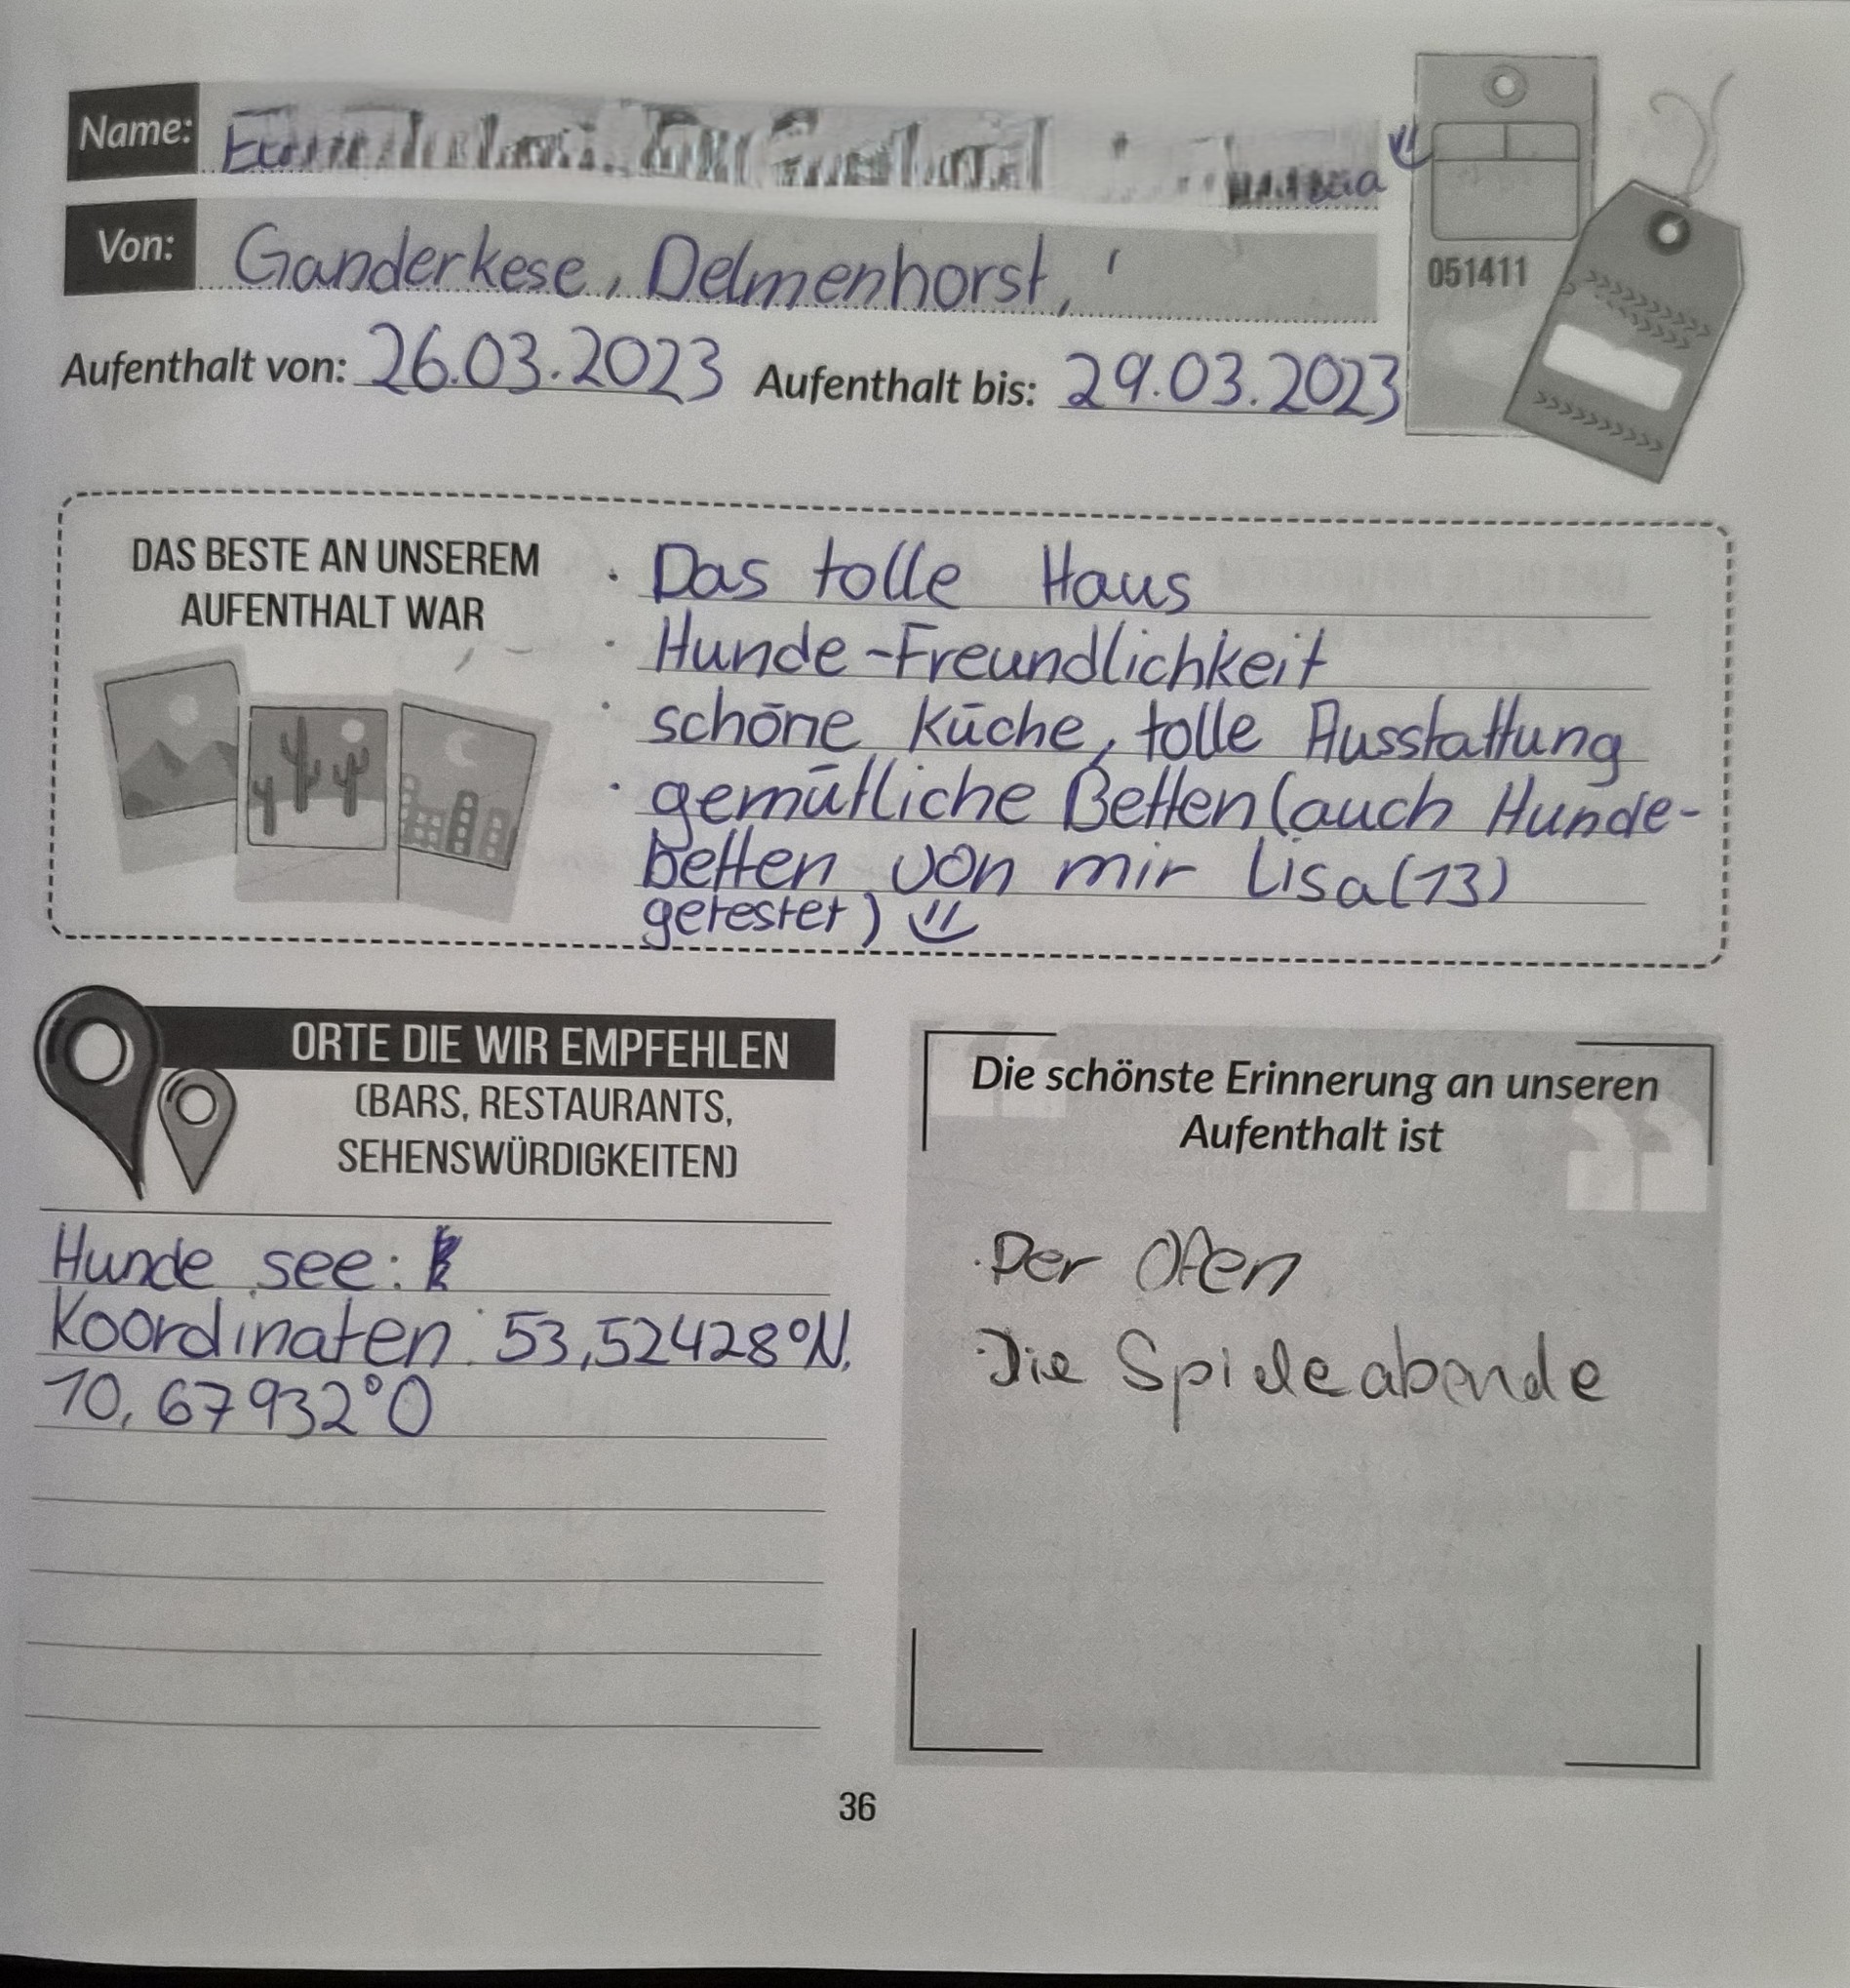 Name:
Von: Ganderkese, Delmenhorst,
Aufenthalt von: 26.03.2023 Aufenthalt bis: 29.03.2023
051411
DAS BESTE AN UNSEREM
AUFENTHALT WAR
· Das tolle Haus
· Hunde-Freundlichkeit
· schöne Küche, tolle Ausstattung
· gemütliche Betten (auch Hunde-
betten von mir Lisa (13)
getestet)
ORTE DIE WIR EMPFEHLEN
(BARS, RESTAURANTS,
SEHENSWÜRDIGKEITEN)
Hunde see:
Koordinaten: 53,52428°N,
10,67932°O
Die schönste Erinnerung an unseren
Aufenthalt ist
· Der Ofen
· Die Spieleabende
36